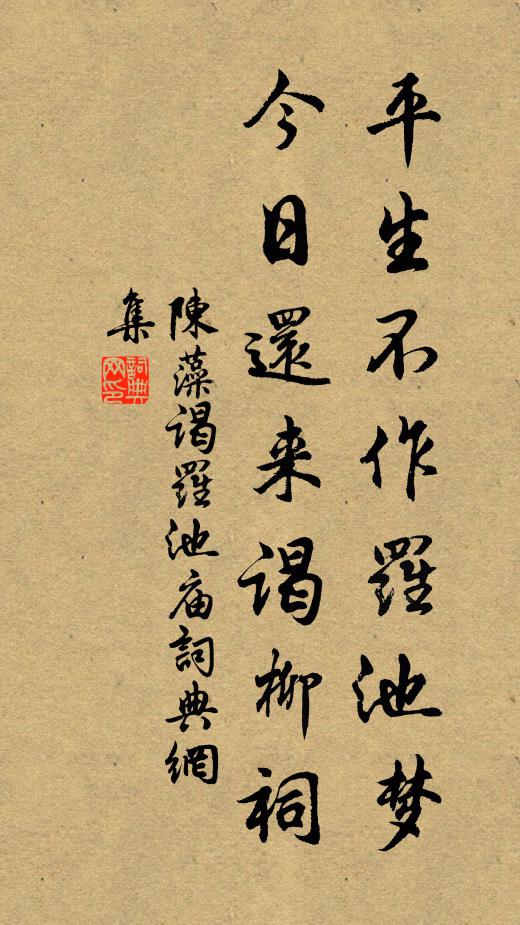 平生不作羅池梦
今日還来谒柳祠
陳藻谒羅池庙詞典網
集
詞典网印